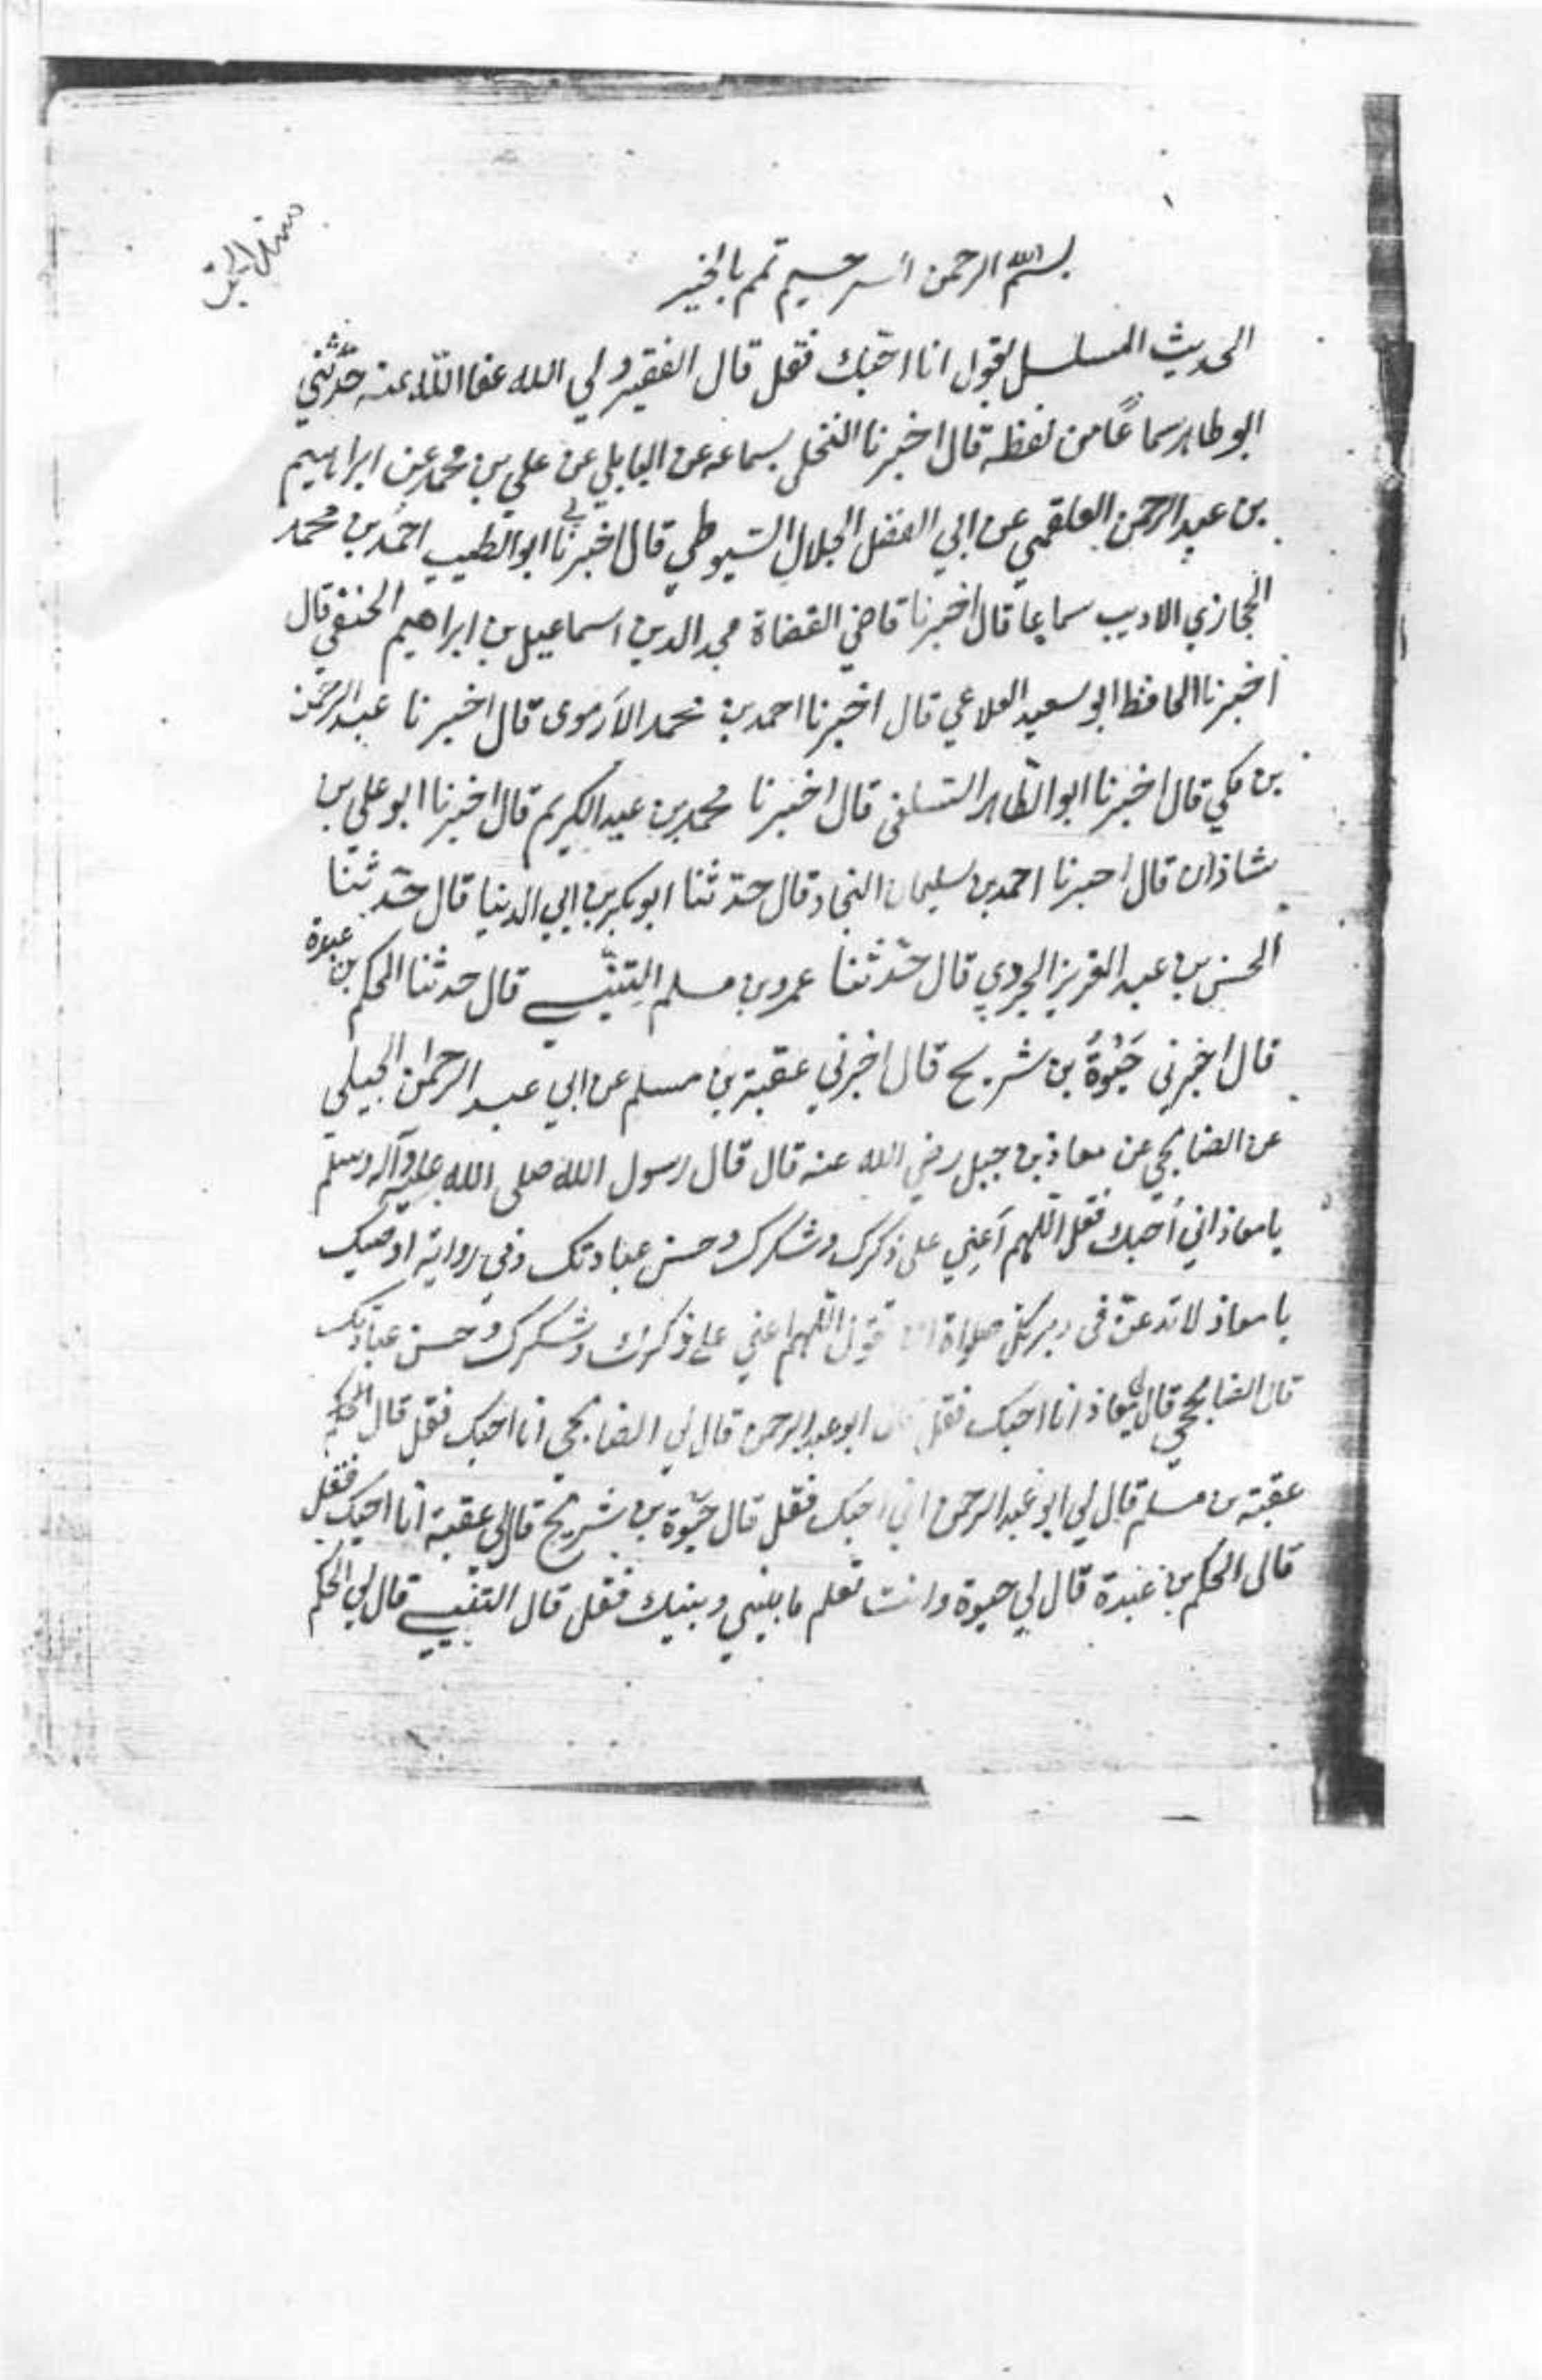 ١
بسم الله الرحمن الرحيم تمم بالخير
الحديث المسلسل بقول انا احبك فقل قال الفقير ولي الله عفا الله عنه حدّثني
ابو طاهر سماعًا من لفظه قال اخبرنا النخلي بسماعه عن البابلي عن علي بن محمد عن ابراهيم
بن عبد الرحمن العلقمي عن ابي الفضل الجلال السّيوطي قال اخبرنا ابو الطيب احمد بن محمد
الحجازي الاديب سماعا قال اخبرنا قاضي القضاة مجد الدين اسماعيل بن ابراهيم الحنفي قال
اخبرنا الحافظ ابو سعيد العلاعي قال اخبرنا احمد بن محمد الأرموى قال اخبرنا عبد الرحمن
بن مكي قال اخبرنا ابو الطّاهر السّلفى قال اخبرنا محمد بن عبد الكريم قال اخبرنا ابو علي بن
شاذان قال اخبرنا احمد بن سليمان النجاد قال حدّثنا ابو بكر بن ابي الدنيا قال حدّثنا
الحسن بن عبد العزيز الجروي قال حدّثنا عمرو بن مسلم التنّيسي قال حدثنا الحكم بن عبدة
قال اخبرني حَيْوَةُ بن شريح قال اخبرني عقبة بن مسلم عن ابي عبد الرحمٰن الجبلي
عن الصنابحي عن معاذ بن جبل رضي الله عنه قال قال رسول الله صلى الله عليه وآله وسلم
يا معاذ اني أحبك فقل اللّهم أعِنِي على ذكرك وشكرك وحسن عبادتك وفي رواية اوصيك
يا معاذ لا تدعنّ فى دبر كل صلواة ان تقول اللّهم اعني على ذكرك وشكرك وحسن عبادتك
قال الصنابحي قال لي معاذ انا احبك فقل قال ابو عبد الرحمن قال لي الصنابحي انا احبك فقل قال
عقبة بن مسلم قال لي ابو عبد الرحمن اني احبك فقل قال حيوة بن شريح قال لي عقبة انا احبك فقل
قال الحكم بن عبدة قال لي حيوة وانت تعلم ما بيني وبينك فقل قال التنيسي قال لي الحكم